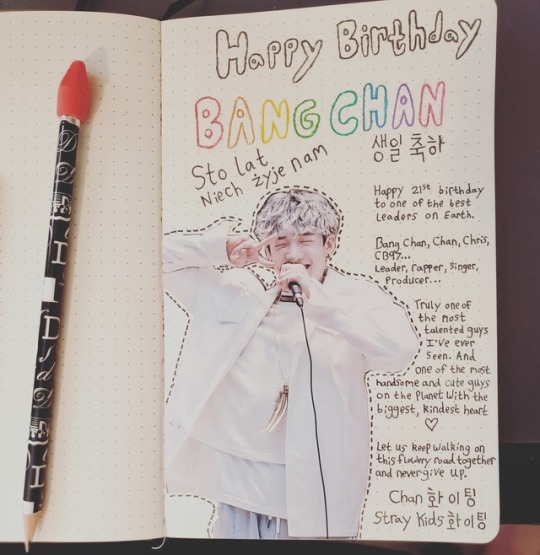 Happy Birthday
BANG CHAN
생일 축하
Sto lat
Niech żyje nam
Happy 21st birthday
to one of the best
Leaders on Earth.
Bang Chan, Chan, Chris,
CB97...
Leader, rapper, singer,
Producer...
Truly one of
the most
talented guys
I've ever
seen. And
one of the most
handsome and cute guys
on the planet with the
biggest, kindest heart
♡
Let us keep walking on
this flowery road together
and never give up.
Chan 화이팅
Stray Kids 화이팅